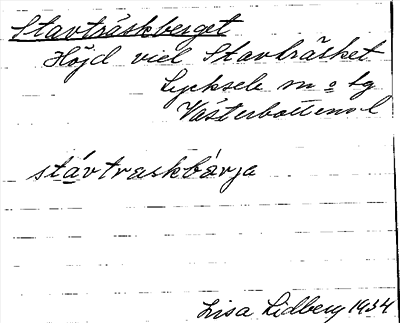 Stavträskberget
Höjd vid Stavträsket
Lycksele sn o tg
Västerbottens l
stávtraskbárja
Lisa Lidberg 1934